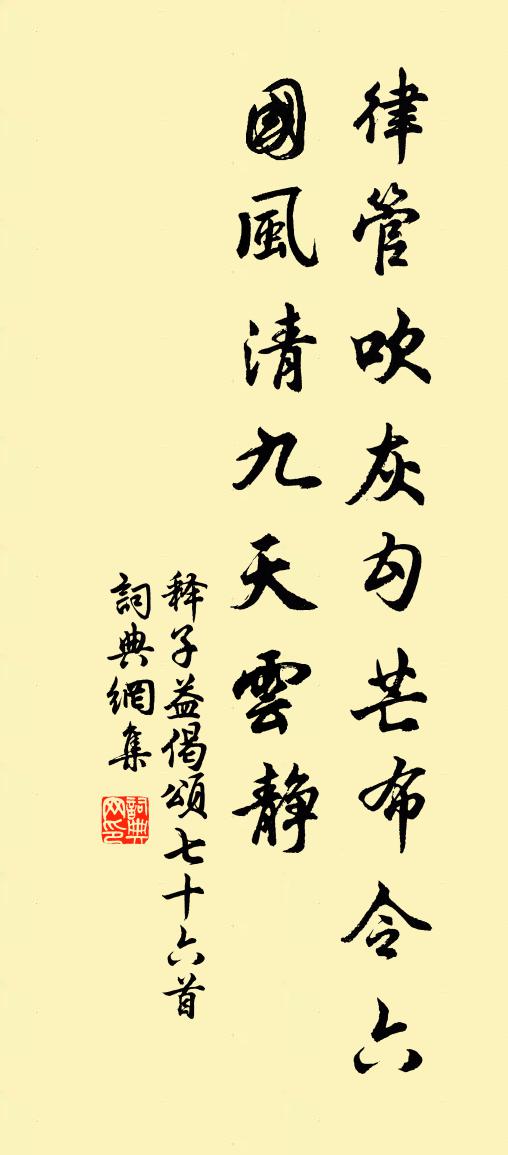 律管吹灰勾芒布令六
國風清九天雲静
释子益偈頌七十六首
詞典網集
詞典网印